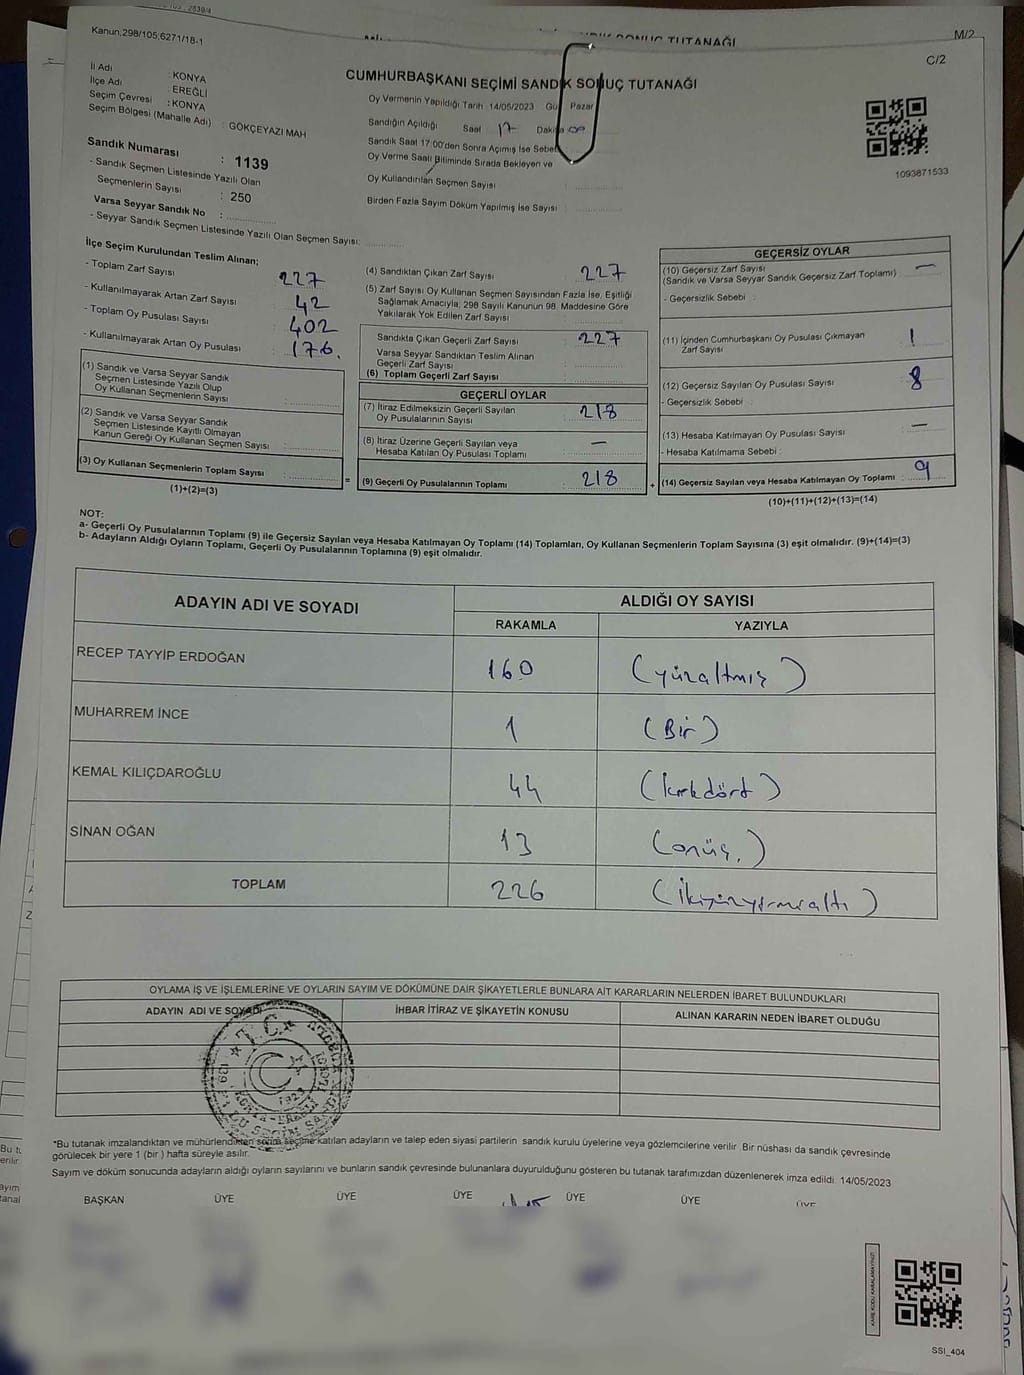 Kanun;298/105;6271/18-1
SONUÇ TUTANAĞI
M/2
C/2
İl Adı : KONYA
İlçe Adı : EREĞLİ
Seçim Çevresi : KONYA
Seçim Bölgesi (Mahalle Adı) : GÖKÇEYAZI MAH
Sandık Numarası : 1139
- Sandık Seçmen Listesinde Yazılı Olan
Seçmenlerin Sayısı : 250
Varsa Seyyar Sandık No :
- Seyyar Sandık Seçmen Listesinde Yazılı Olan Seçmen Sayısı:
CUMHURBAŞKANI SEÇİMİ SANDIK SONUÇ TUTANAĞI
Oy Vermenin Yapıldığı Tarih :14/05/2023 Gü Pazar
Sandığın Açıldığı Saat 17 Dakika 00
Sandık Saat 17:00'den Sonra Açımış İse Sebe
Oy Verme Saati Bitiminde Sırada Bekleyen ve
Oy Kullandırılan Seçmen Sayısı :
Birden Fazla Sayım Döküm Yapılmış İse Sayısı :
1093871533
İlçe Seçim Kurulundan Teslim Alınan;
- Toplam Zarf Sayısı : 227
- Kullanılmayarak Artan Zarf Sayısı : 42
- Toplam Oy Pusulası Sayısı : 402
- Kullanılmayarak Artan Oy Pusulası : 176.
(1) Sandık ve Varsa Seyyar Sandık
Seçmen Listesinde Yazılı Olup
Oy Kullanan Seçmenlerin Sayısı :
(2) Sandık ve Varsa Seyyar Sandık
Seçmen Listesinde Kayıtlı Olmayan
Kanun Gereği Oy Kullanan Seçmen Sayısı :
(3) Oy Kullanan Seçmenlerin Toplam Sayısı :
(1)+(2)=(3)
=
(4) Sandıktan Çıkan Zarf Sayısı : 227
(5) Zarf Sayısı Oy Kullanan Seçmen Sayısından Fazla İse, Eşitliği
Sağlamak Amacıyla; 298 Sayılı Kanunun 98. Maddesine Göre
Yakılarak Yok Edilen Zarf Sayısı :
Sandıkta Çıkan Geçerli Zarf Sayısı : 227
Varsa Seyyar Sandıktan Teslim Alınan
Geçerli Zarf Sayısı :
(6) Toplam Geçerli Zarf Sayısı :
GEÇERLİ OYLAR
(7) İtiraz Edilmeksizin Geçerli Sayılan
Oy Pusulalarının Sayısı : 218
(8) İtiraz Üzerine Geçerli Sayılan veya
Hesaba Katılan Oy Pusulası Toplamı : —
(9) Geçerli Oy Pusulalarının Toplamı : 218
+
GEÇERSİZ OYLAR
(10) Geçersiz Zarf Sayısı : —
(Sandık ve Varsa Seyyar Sandık Geçersiz Zarf Toplamı)
- Geçersizlik Sebebi :
(11) İçinden Cumhurbaşkanı Oy Pusulası Çıkmayan : 1
Zarf Sayısı
(12) Geçersiz Sayılan Oy Pusulası Sayısı : 8
- Geçersizlik Sebebi :
(13) Hesaba Katılmayan Oy Pusulası Sayısı : —
- Hesaba Katılmama Sebebi :
(14) Geçersiz Sayılan veya Hesaba Katılmayan Oy Toplamı : 9
(10)+(11)+(12)+(13)=(14)
NOT:
a- Geçerli Oy Pusulalarının Toplamı (9) ile Geçersiz Sayılan veya Hesaba Katılmayan Oy Toplamı (14) Toplamları, Oy Kullanan Seçmenlerin Toplam Sayısına (3) eşit olmalıdır. (9)+(14)=(3)
b- Adayların Aldığı Oyların Toplamı, Geçerli Oy Pusulalarının Toplamına (9) eşit olmalıdır.
ADAYIN ADI VE SOYADI ALDIĞI OY SAYISI
RAKAMLA YAZIYLA
RECEP TAYYİP ERDOĞAN 160 (yüzaltmış)
MUHARREM İNCE 1 (Bir)
KEMAL KILIÇDAROĞLU 44 (kırkdört)
SİNAN OĞAN 13 (onüç.)
TOPLAM 226 (İkiyüzyirmialtı)
OYLAMA İŞ VE İŞLEMLERİNE VE OYLARIN SAYIM VE DÖKÜMÜNE DAİR ŞİKAYETLERLE BUNLARA AİT KARARLARIN NELERDEN İBARET BULUNDUKLARI
ADAYIN ADI VE SOYADI İHBAR İTİRAZ VE ŞİKAYETİN KONUSU ALINAN KARARIN NEDEN İBARET OLDUĞU
T.C.
*Bu tutanak imzalandıktan ve mühürlendikten sonra seçime katılan adayların ve talep eden siyasi partilerin sandık kurulu üyelerine veya gözlemcilerine verilir. Bir nüshası da sandık çevresinde
görülecek bir yere 1 (bir ) hafta süreyle asılır.
Sayım ve döküm sonucunda adayların aldığı oyların sayılarını ve bunların sandık çevresinde bulunanlara duyurulduğunu gösteren bu tutanak tarafımızdan düzenlenerek imza edildi. 14/05/2023
BAŞKAN ÜYE ÜYE ÜYE ÜYE ÜYE ÜYE
KARE KODU KARALAMAYINIZ!
SSI_404